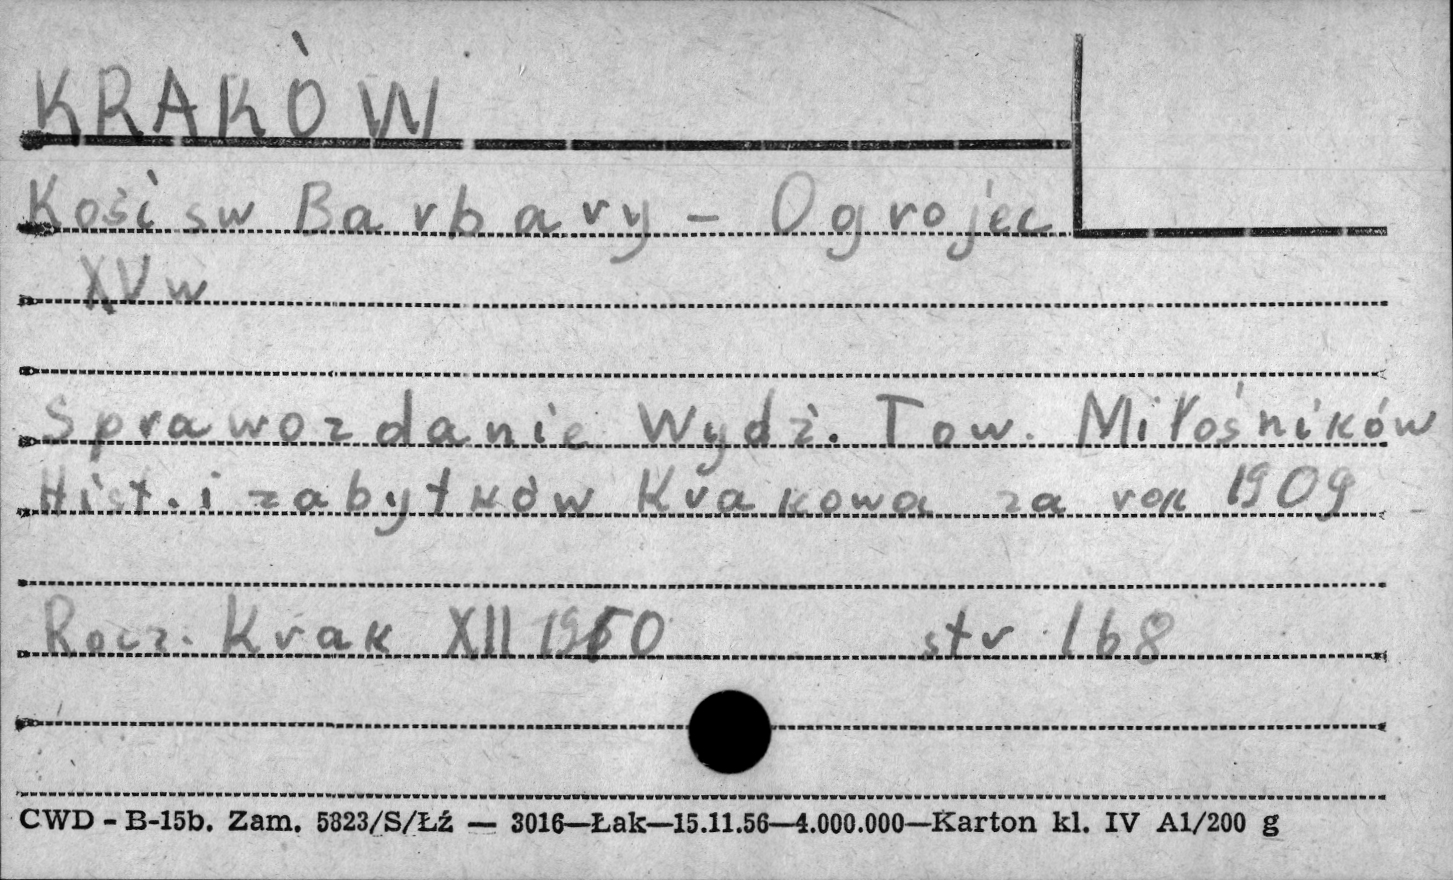 KRAKÒW
Kośi sw Barbary – Ogrojec
XV w
Sprawozdanie Wydź. Tow. Miłośników
Hist. i zabytków Krakowa za rok 1909
Rocz. Krak XII 1910 str 168
CWD - B-15b. Zam. 5823/S/Łź — 3016—Łak—15.11.56—4.000.000—Karton kl. IV A1/200 g